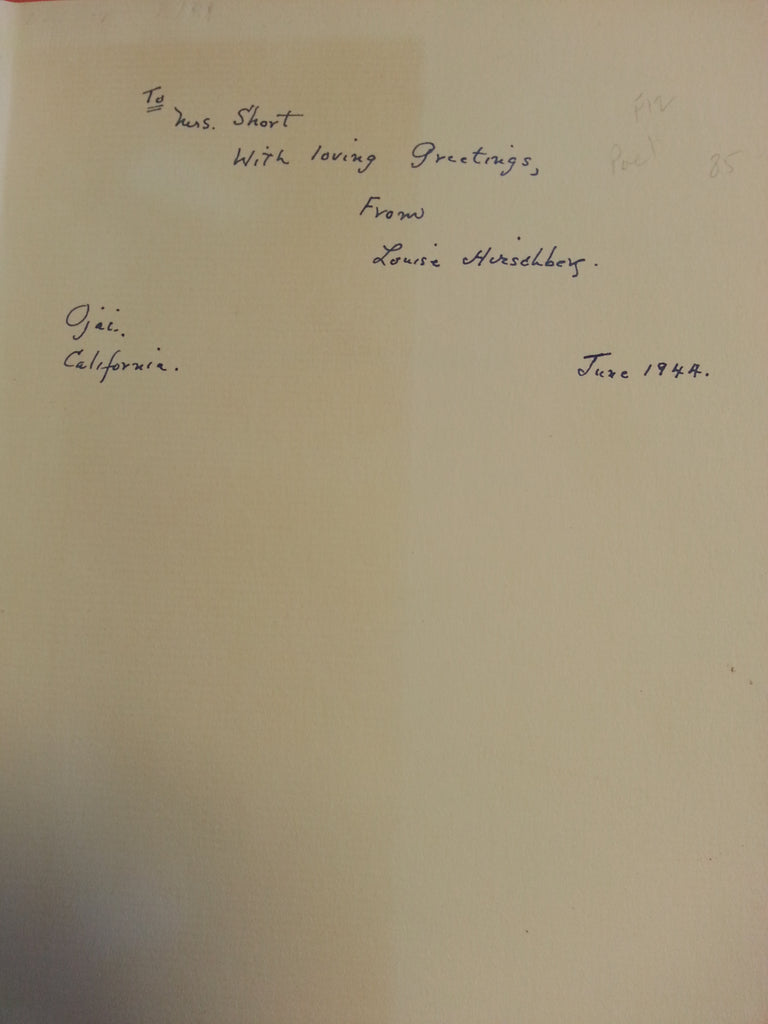 To
Mrs. Short
With loving Greetings,
From
Louise Hirschberg.
Ojai.
California.
June 1944.